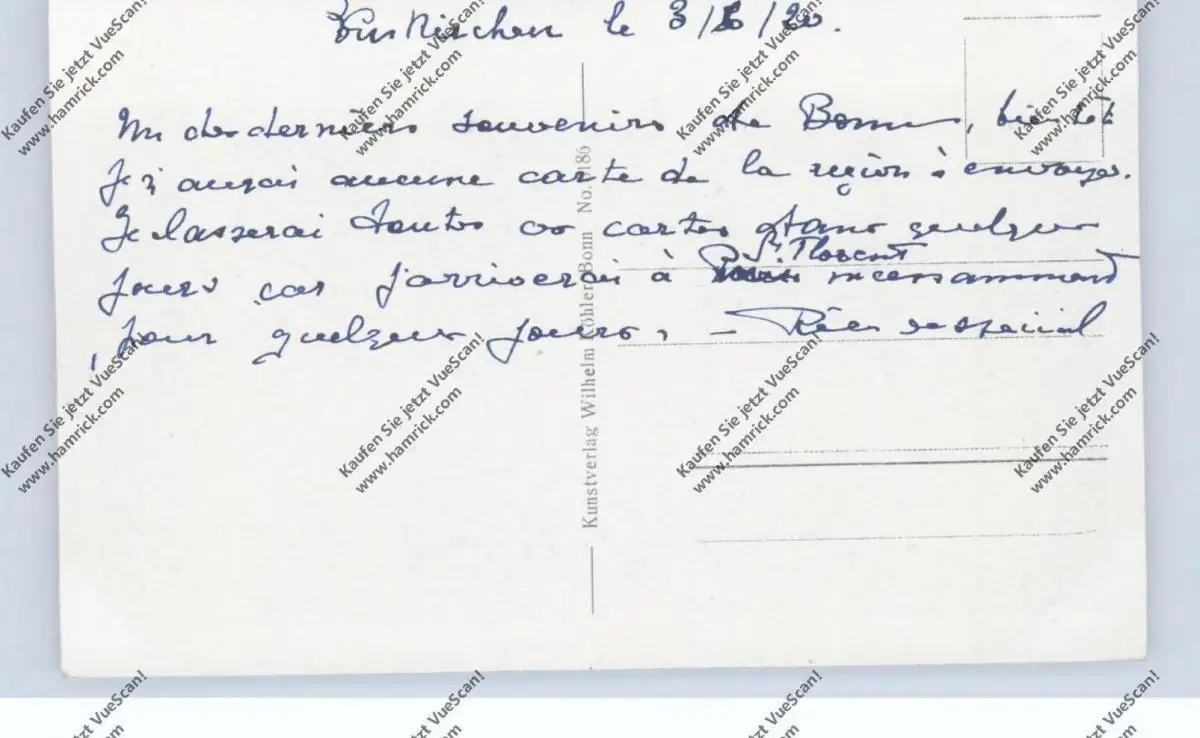 le 3/6/20.
Un des derniers souvenirs de Bonn, bientôt
Je n'aurai aucune carte de la région à envoyer.
Je classerai toutes ces cartes dans quelques
St. Florent
jours car j'arriverai à incessamment
pour quelques jours. – Rien de spécial
Kunstverlag Wilhelm Köhler, Bonn No.
Kaufen Sie jetzt VueScan!
www.hamrick.com